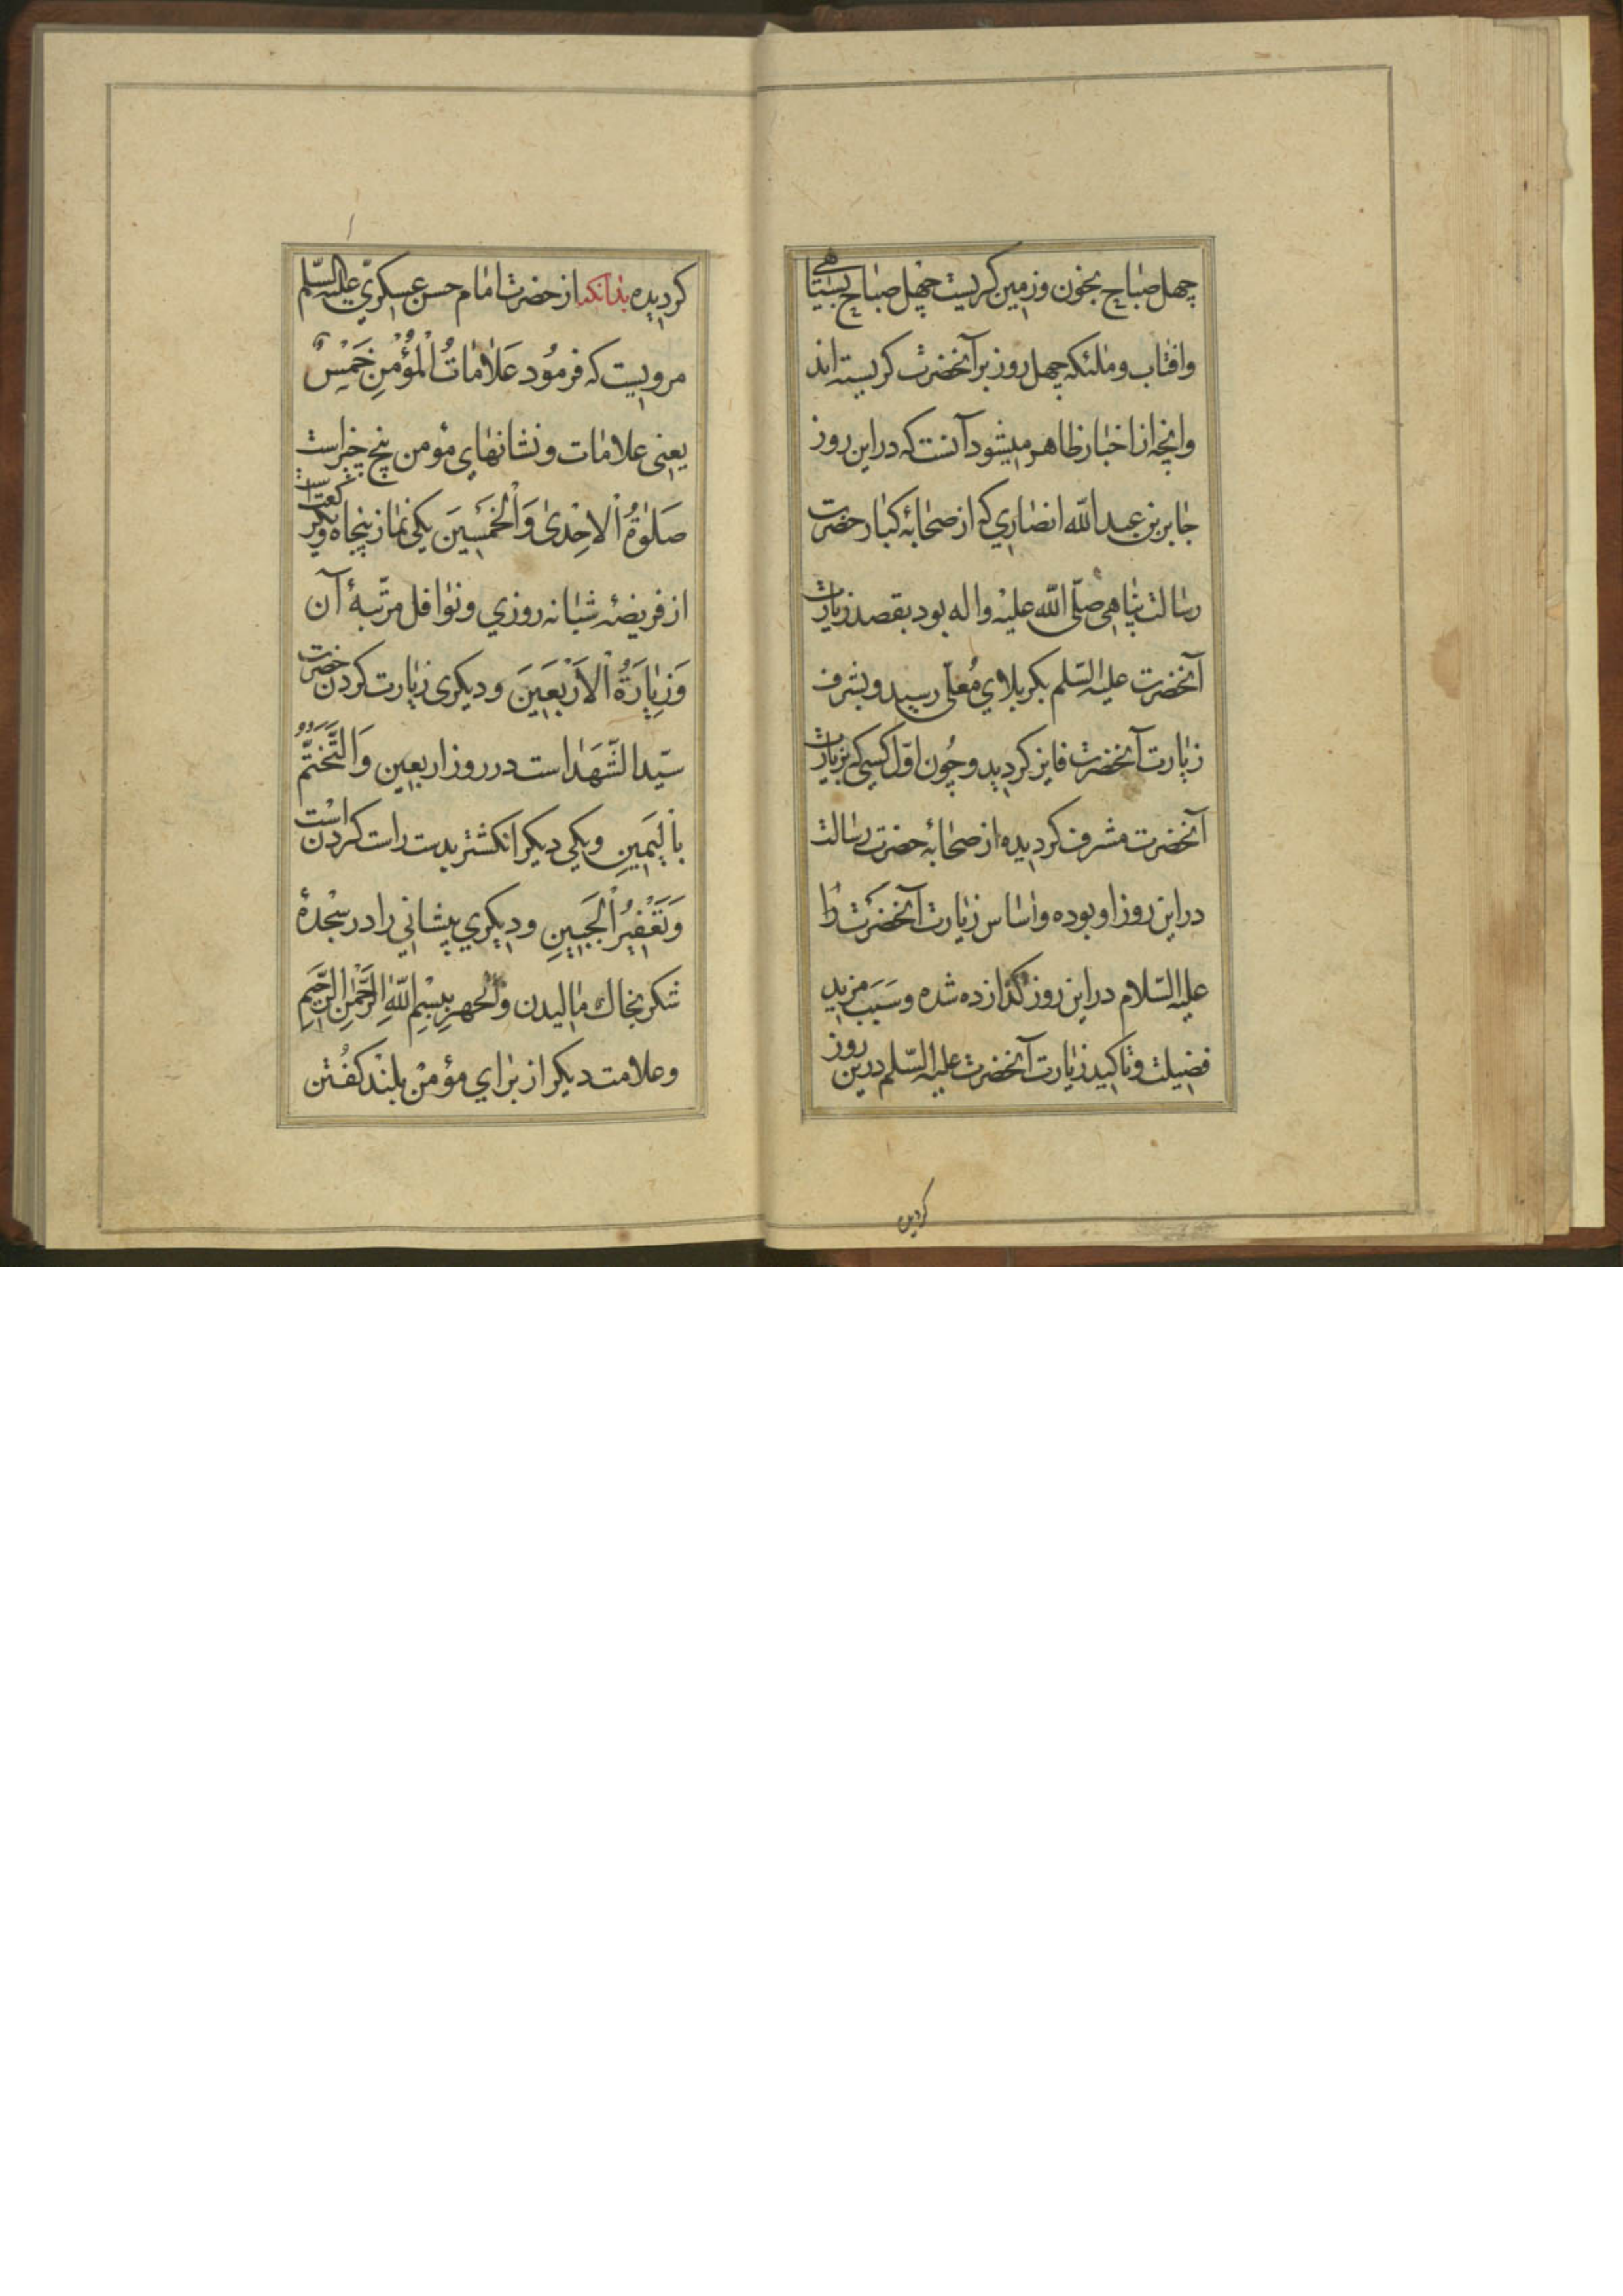 چهل صباح بخون و زمین کریست چهل صباح بسیاهی
وافتاب وملئکه چهل روز برآنحضرت کریسته اند
وانچه از اخبار ظاهر میشود آنست که در این روز
جابر بن عبد الله انصاری که از صحابهٔ کبار حضرت
رسالت پناهی صلّی الله علیه واله بود بقصد زیارت
آنحضرت علیه السّلم بکربلای مُعلّی رسید وبشرف
زیارت آنحضرت فایز کردید وچُون اوّل کسی که بزیارت
آنحضرت مشرف کردیده از صحابهٔ حضرت رسالت
در این روز او بوده واساس زیارت آنحضرت را
علیه السّلام در این روز کذارده شده وسَبَب مزید
فضیلت وتاکید زیارت آنحضرت علیه السّلم درین روز
کردیده بدانکه از حضرت امام حسن عسکریّ علیه السّلم
مرویست که فرمُود عَلاماتُ الْمُؤْمِنِ خَمْسٌ
یعنی علامات ونشانهای مؤمن پنج چیز است
صَلوٰةُ الْاِحْدیٰ وَالْخَمْسِینَ یکی نماز پنجاه ویکرکعت است
از فریضهٔ شبانه روزی ونوافل مرتّبهٔ آن
وَزِیٰارَةُ الْاَرْبَعِینَ ودیکری زیارت کردن حضرت
سیّد الشّهَدا است در روز اربعین وَالتَّخَتُّمُ
بِالْیَمِینِ ویکی دیکر انکشتر بدست راست کردن است
وَتَعْفِیرُ الْجَبِینِ ودیکری پیشانی را در سجْدهٔ
شکر بخاك مالیدن وَالْجَهرِ بِبِسْمِ اللّٰهِ الرَّحْمٰنِ الرَّحیمِ
وعلامت دیکر از برای مؤمنْ بلند کفُتن
کردیده